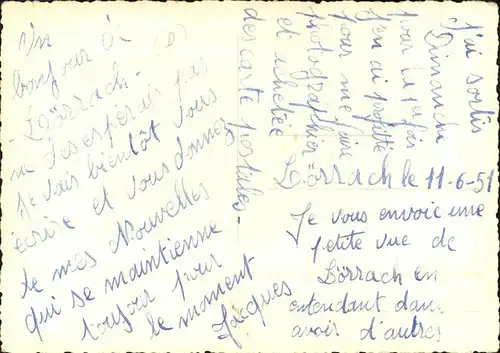 Lörrach le 11-6-51
Je vous envoie une
petite vue de
Lörrach en
entendant dans
avoir d'autres
J'ai sortis
Dimanche
pour la 1e fois
j'en ai profité
pour me faire
photographier
et acheter
des carte postales -
Un
bonjour de
Lörrach - (D)
ne desesperais pas
Je vais bientôt vous
écrire et vous donnez
de mes Nouvelles
qui se maintienne
toujour pour
le moment
Jacques